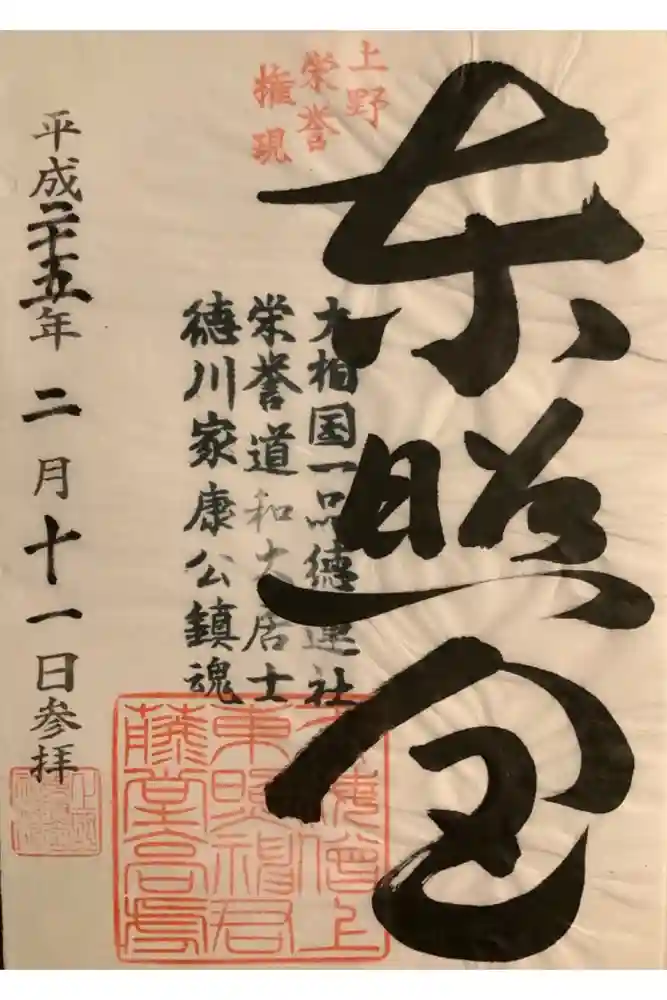 東照宮
上野
栄誉
権現
大相国一品徳蓮社
栄誉道和大居士
徳川家康公鎮魂
東照神君
藤堂高虎
平成二十五年 二月十一日参拝